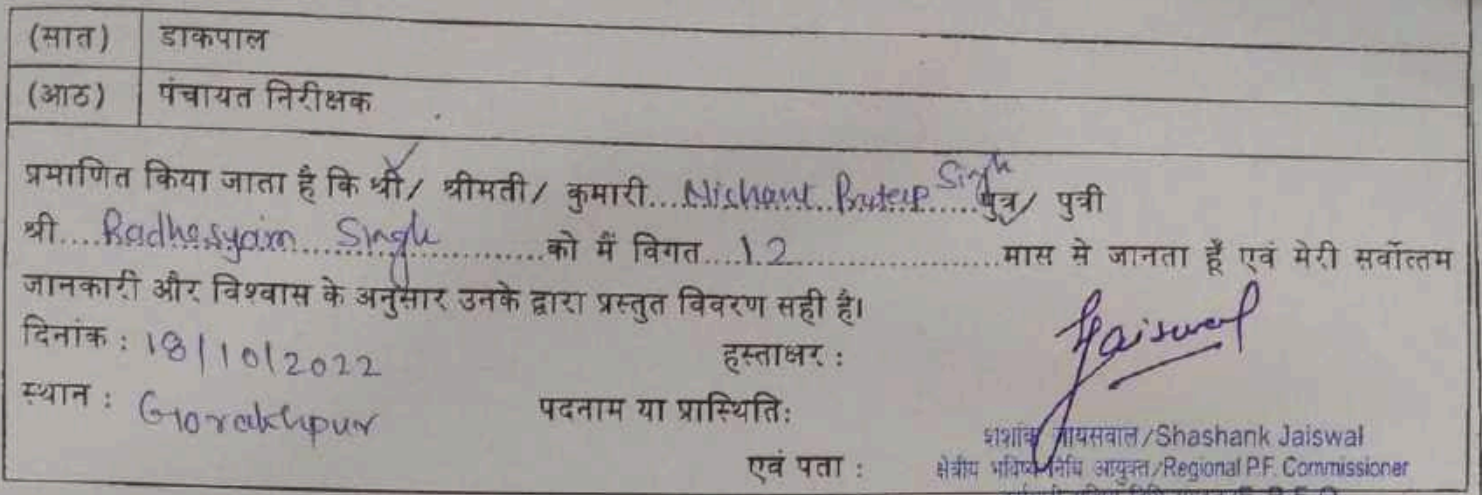 (सात) डाकपाल
(आठ) पंचायत निरीक्षक
प्रमाणित किया जाता है कि श्री/ श्रीमती/ कुमारी...Nishant Pratap Singh...पुत्र/ पुत्री
श्री....Radhesyam Singh............को मैं विगत....12......................मास से जानता हूँ एवं मेरी सर्वोत्तम
जानकारी और विश्वास के अनुसार उनके द्वारा प्रस्तुत विवरण सही है।
दिनांक : 18/10/2022 हस्ताक्षर : Jaiswal
स्थान : Gorakhpur पदनाम या प्रास्थिति:
शशांक जायसवाल/Shashank Jaiswal
एवं पता : क्षेत्रीय भविष्य निधि आयुक्त/Regional P.F. Commissioner